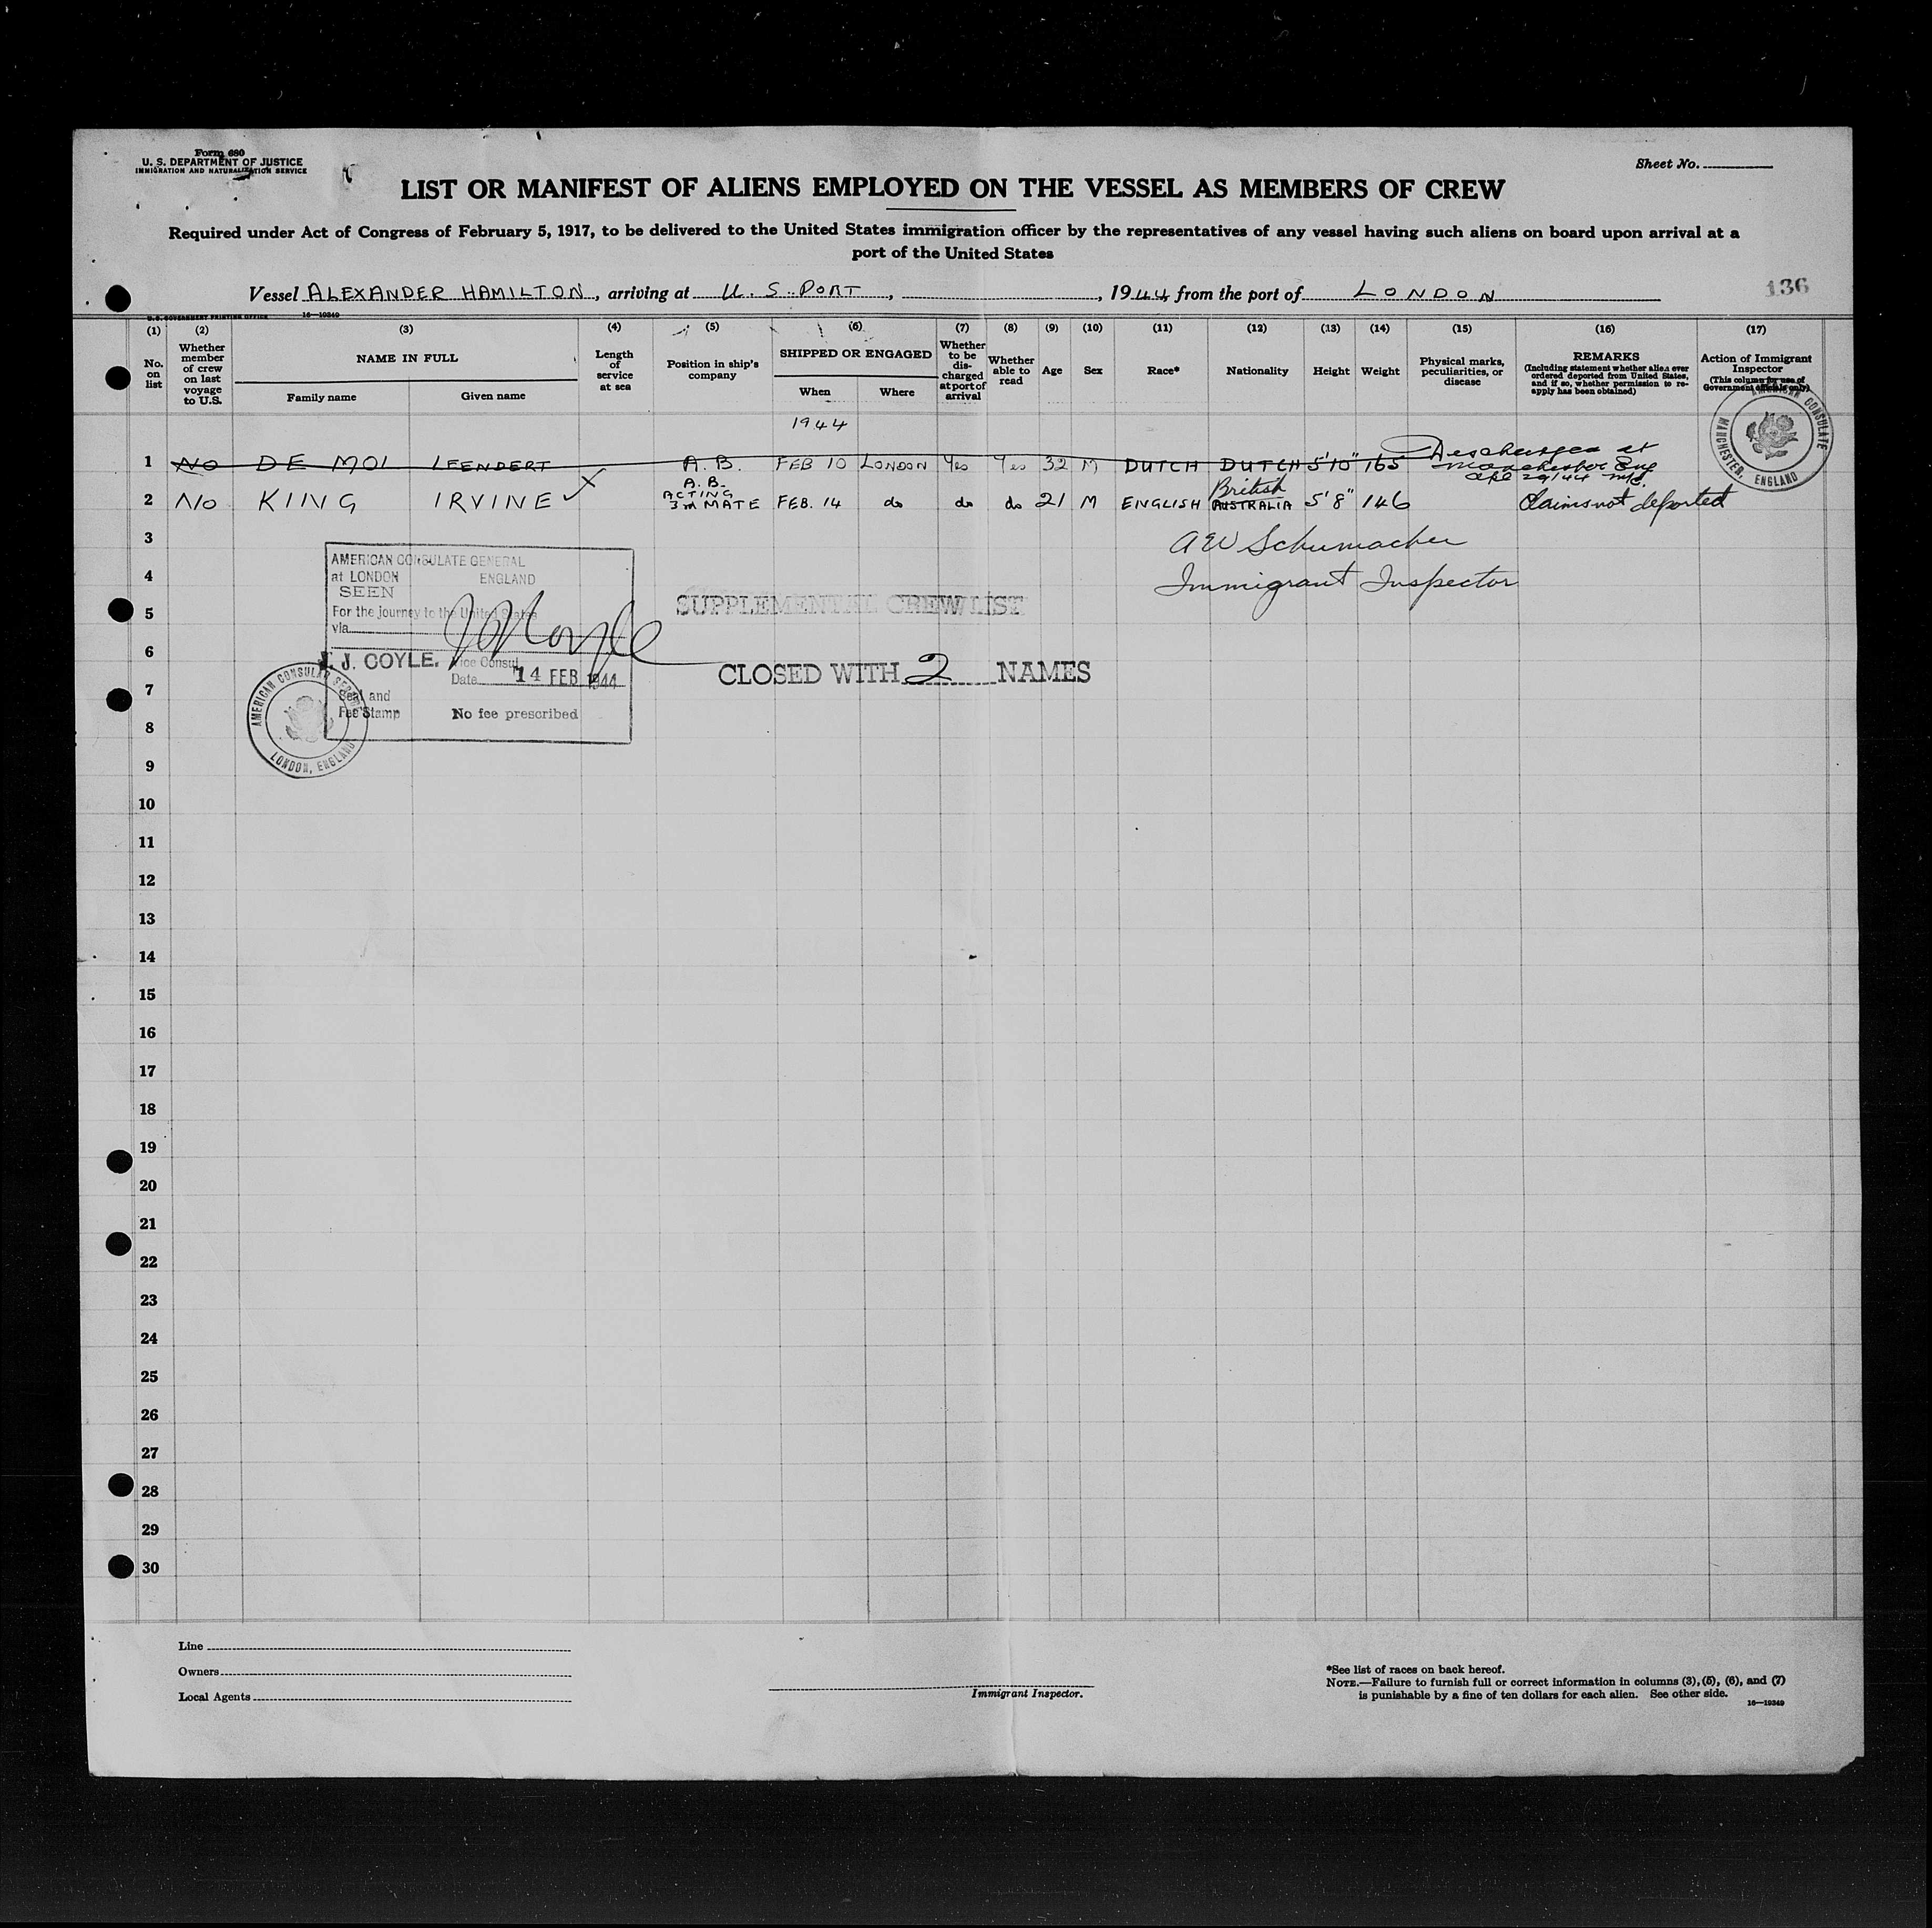 Form 680
U. S. DEPARTMENT OF JUSTICE
IMMIGRATION AND NATURALIZATION SERVICE
Sheet No.
LIST OR MANIFEST OF ALIENS EMPLOYED ON THE VESSEL AS MEMBERS OF CREW
Required under Act of Congress of February 5, 1917, to be delivered to the United States immigration officer by the representatives of any vessel having such aliens on board upon arrival at a
port of the United States
136
Vessel ALEXANDER HAMILTON, arriving at U. S. PORT, , 1944 from the port of LONDON
U.S. GOVERNMENT PRINTING OFFICE 16—19349
(1) No. on list
(2) Whether member of crew on last voyage to U.S.
(3) NAME IN FULL
Family name Given name
(4) Length of service at sea
(5) Position in ship's company
(6) SHIPPED OR ENGAGED
When Where
(7) Whether to be discharged at port of arrival
(8) Whether able to read
(9) Age
(10) Sex
(11) Race*
(12) Nationality
(13) Height
(14) Weight
(15) Physical marks, peculiarities, or disease
(16) REMARKS
(Including statement whether alien ever ordered deported from United States, and if so, whether permission to re-apply has been obtained)
(17) Action of Immigrant Inspector
(This column for use of Government officials only)
AMERICAN CONSULATE
MANCHESTER, ENGLAND
1944
1 NO DE MOL LEENDERT A.B. FEB 10 LONDON Yes Yes 32 M DUTCH DUTCH 5'10" 165 Descharged at
Manchester Eng
Apl 29/44
2 NO KING IRVINE A.B. ACTING 3rd MATE FEB. 14 do do do 21 M ENGLISH AUSTRALIA British 5'8" 146 Claims not deported
3 A W Schumacher
4 Immigrant Inspector
AMERICAN CONSULATE GENERAL
at LONDON ENGLAND
SEEN
For the journey to the United States
via
J. J. COYLE. Vice Consul
Date 14 FEB 1944
Seal and
Fee Stamp No fee prescribed
AMERICAN CONSULAR SERVICE
LONDON, ENGLAND
SUPPLEMENTAL CREW LIST
CLOSED WITH 2 NAMES
5
6
7
8
9
10
11
12
13
14
15
16
17
18
19
20
21
22
23
24
25
26
27
28
29
30
Line
Owners
Local Agents
Immigrant Inspector.
*See list of races on back hereof.
NOTE.—Failure to furnish full or correct information in columns (3), (5), (6), and (7)
is punishable by a fine of ten dollars for each alien. See other side.
16—19349